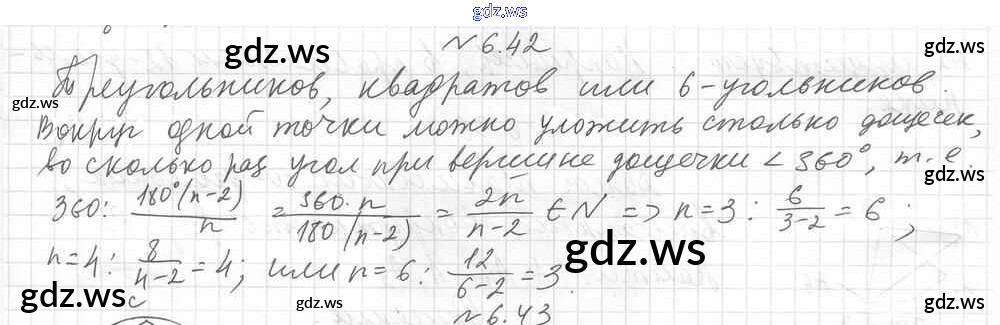 gdz.ws
№ 6.42
Треугольников, квадратов или 6-угольников.
Вокруг одной точки можно уложить столько дощечек,
во сколько раз угол при вершине дощечки < 360°, т.е.
360: 180°(n-2)/n = 360·n/180(n-2) = 2n/n-2 ∈ N => n=3: 6/3-2 = 6;
n=4: 8/4-2 = 4; или n=6: 12/6-2 = 3.
C
№ 6.43
gdz.ws
gdz.ws
gdz.ws
gdz.ws
gdz.ws
gdz.ws
gdz.ws
gdz.ws
gdz.ws